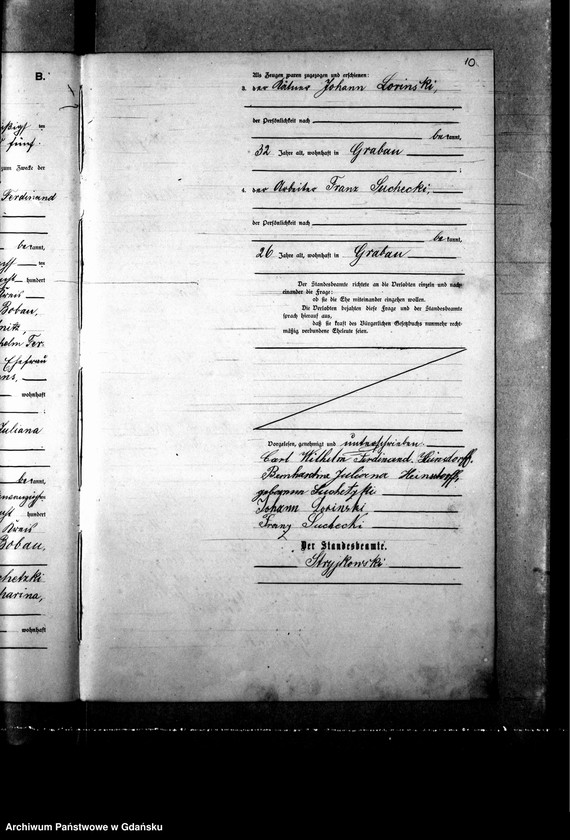 B.
fünf.
zum Zwecke der
Ferdinand
be kannt,
hundert
Kreis
Bobau,
Ehefrau
wohnhaft
;
Juliana
be kannt,
hundert
Kreis
Bobau,
wohnhaft
10.
Als Zeugen waren zugezogen und erschienen:
3. der Kätner Johann Lorinski,
der Persönlichkeit nach
be kannt,
32 Jahre alt, wohnhaft in Grabau
;
4. der Arbeiter Franz Suchecki,
der Persönlichkeit nach
be kannt,
26 Jahre alt, wohnhaft in Grabau
Der Standesbeamte richtete an die Verlobten einzeln und nach-
einander die Frage:
ob sie die Ehe miteinander eingehen wollen.
Die Verlobten bejahten diese Frage und der Standesbeamte
sprach hierauf aus,
daß sie kraft des Bürgerlichen Gesetzbuchs nunmehr recht-
mäßig verbundene Eheleute seien.
Vorgelesen, genehmigt und unterschrieben.
Carl Wilhelm Ferdinand Heinsdorff.
Bernhardina Juliana Heinsdorff,
geborene Suchetzki
Johann Lorinski,
Franz Suchecki
Der Standesbeamte.
Stryjkowski
Archiwum Państwowe w Gdańsku